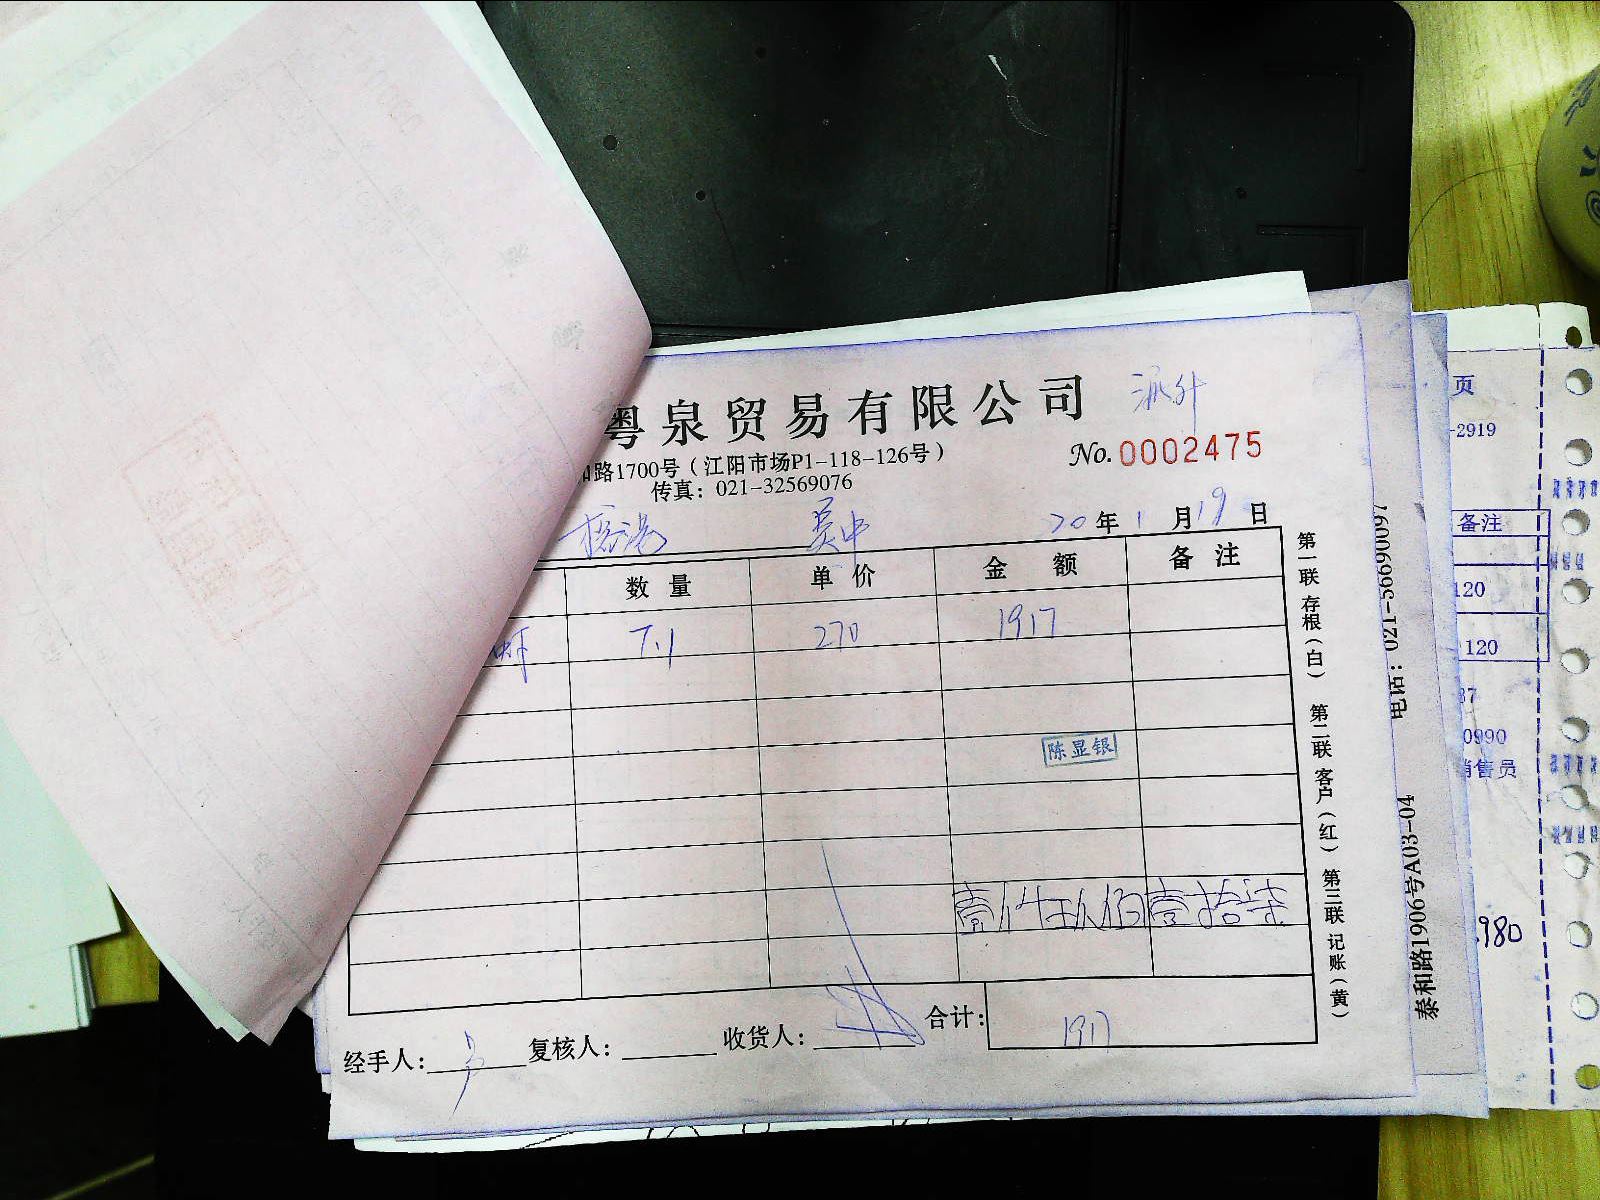 粤泉贸易有限公司
派外
和路1700号（江阳市场P1-118-126号）
No. 0002475
传真：021-32569076
吴中
20年1月19日
数量 单价 金额 备注
虾 7.1 270 1917
陈显银
壹仟玖佰壹拾柒
合计：1917
经手人： 复核人： 收货人：
第一联 存根（白） 第二联 客户（红） 第三联 记账（黄）
电话：021-56690097
泰和路1906号A03-04
页
-2919
备注
120
120
37
0990
销售员
980